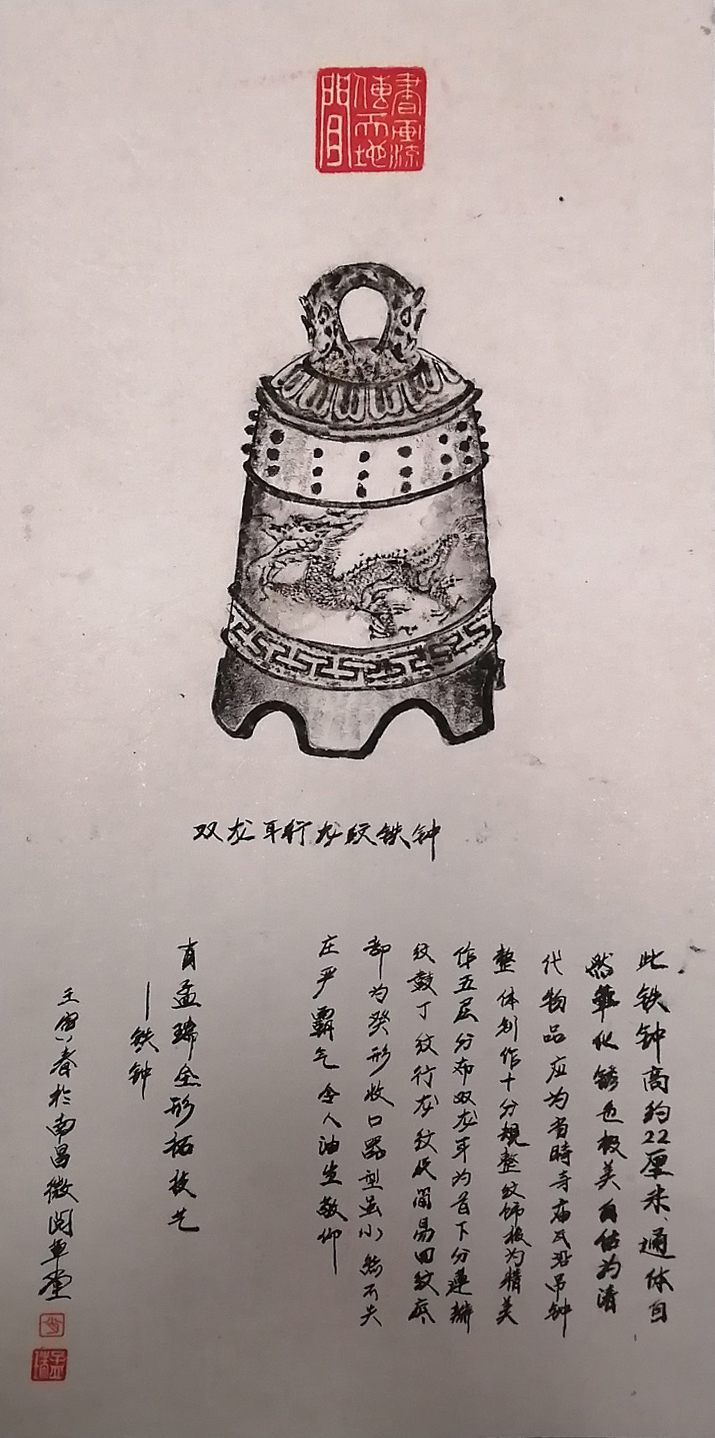 書画流
傳天地
間
双龙耳行龙纹铁钟
此铁钟高约22厘米、通体自
然氧化锈色极美自估为清
代物品应为当時寺庙瓦沿吊钟
整体创作十分规整纹饰极为精美
作五层分布双龙耳为首下分蓮瓣
纹鼓丁纹行龙纹及简易回纹底
部为癸形收口器型虽小然不失
庄严霸气令人油生敬仰
肖孟瑞全形拓技艺
—铁钟
壬寅春於南昌微阅草堂